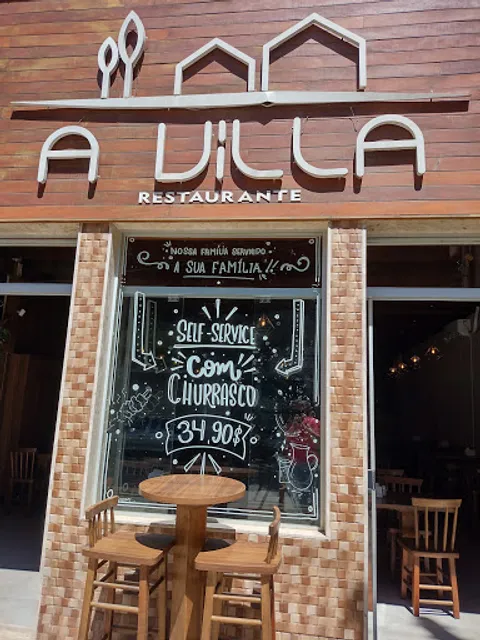 A VILLA
RESTAURANTE
NOSSA FAMÍLIA SERVINDO
A SUA FAMÍLIA!!
SELF-SERVICE
COM
CHURRASCO
34,90$